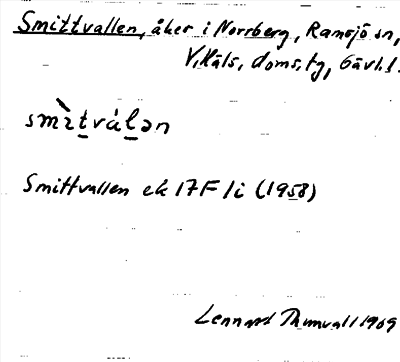 Smittvallen, åker i Norrberg, Ramsjö sn,
V. Häls. doms, tg, Gävl. l.
smìtválən
Smittvallen ek 17F 1i (1958)
Lennart Thunvall 1969